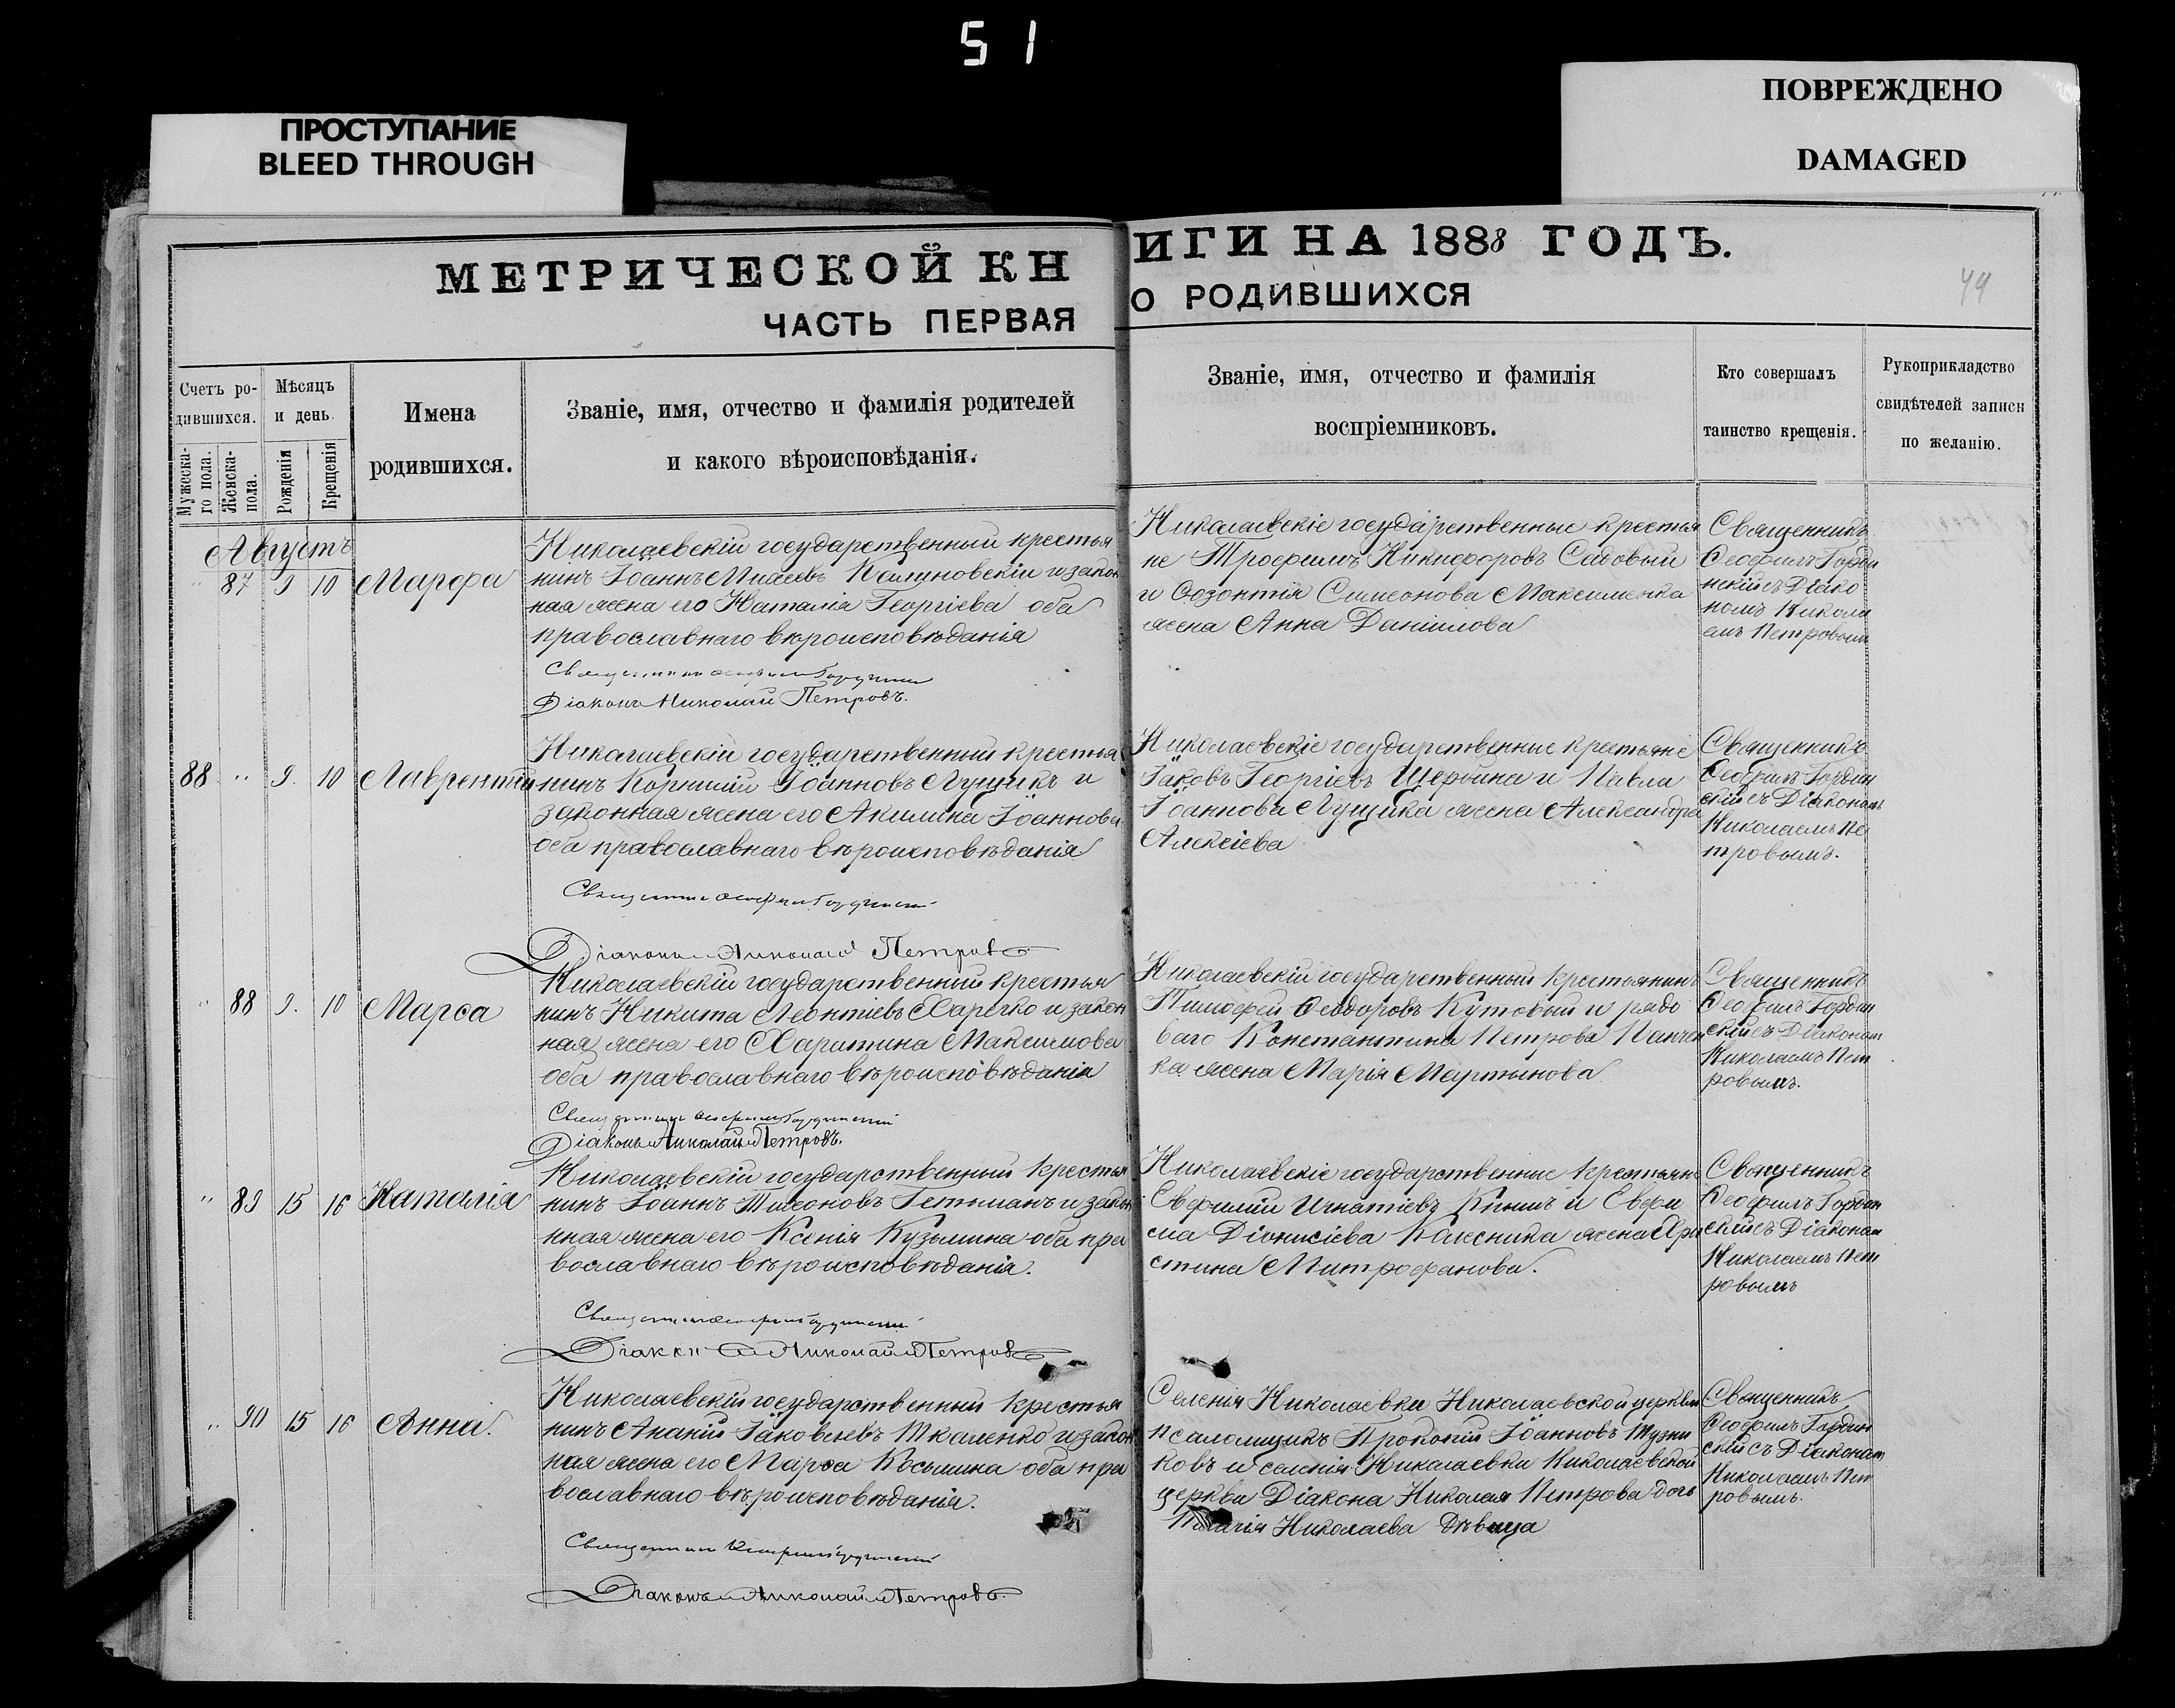 51
ПРОСТУПАНИЕ
BLEED THROUGH
ПОВРЕЖДЕНО
DAMAGED
МЕТРИЧЕСКОЙ КН
ИГИ НА 1888 ГОДЪ.
ЧАСТЬ ПЕРВАЯ
О РОДИВШИХСЯ
Счетъ ро-
дившихся.
Мужеска-
го пола.
Женска-
пола.
Мѣсяцъ
и день.
Рожденія
Крещенія
Имена
родившихся.
Званіе, имя, отчество и фамилія родителей
и какого вѣроисповѣданія.
Званіе, имя, отчество и фамилія
воспріемниковъ.
Кто совершалъ
таинство крещенія.
Рукоприкладство
свидѣтелей записи
по желанію.
Августъ
" 87 9 10 Марфа
Николаевскій государственный крестья
нинъ Іоаннъ и закон
ная жена его Наталія Георгіева оба
православнаго вѣроисповѣданія
Діаконъ Николай Петровъ.
Николаевскіе государственные крестья
не Трофимъ Никифоровъ Садовый
и Созонтія Симеонова Максименка
жена Анна Даніилова
Священникъ
Феофилъ Горди
нскій съ Діако
номъ Никола
емъ Петровымъ
88 " 9. 10 Лаврентій
Николаевскій государственный крестья
нинъ Корнилій Іоанновъ Лущикъ и
законная жена его Акилина Іоаннова
оба православнаго вѣроисповѣданія
Діаконъ Николай Петровъ
Николаевскіе государственные крестьяне
Іаковъ Георгіевъ Щербина и Павла
Іоаннова Лущика жена Александра
Алексіева
Священникъ
Феофилъ Гордин
скій съ Діакономъ
Николаемъ Пе
тровымъ.
" 88 9. 10 Марѳа
Николаевскій государственный крестья
нинъ Никита Леонтіевъ Харечко и закон
ная жена его Харитина Максимова
оба православнаго вѣроисповѣданія
Діаконъ Николай Петровъ.
Николаевскій государственный крестьянинъ
Тимофей Феодоровъ Кутовый и рядо
ваго Константина Петрова Панчен
ка жена Марія Мартынова
Священникъ
Феофилъ Гордин
скій съ Діакономъ
Николаемъ Пет
ровымъ.
" 89 15 16 Наталія
Николаевскій государственный крестья
нинъ Іоаннъ Гетманъ и закон
ная жена его Ксенія Кузьмина оба пра
вославнаго вѣроисповѣданія.
Діаконъ Николай Петровъ
Николаевскіе государственные крестьяне
Евфимій Игнатіевъ и Евфи
ма Діонисіева Колесника жена Хри
стина Митрофанова.
Священникъ
Феофилъ Гордин
скій съ Діакономъ
Николаемъ Пет
ровымъ
" 90 15 16 Анна.
Николаевскій государственный крестья
нинъ Ананій Іаковлевъ Ткаленко и закон
ная жена его Марѳа Косьмина оба пра
вославнаго вѣроисповѣданія.
Діаконъ Николай Петровъ.
Селенія Николаевки Николаевской церкви
псаломщикъ Прокопій Іоанновъ
и селенія Николаевки Николаевской
церкви Діакона Николая Петрова дочь
Николаева дѣвица
Священникъ
Феофилъ Гордин
скій съ Діакономъ
Николаемъ Пет
ровымъ.